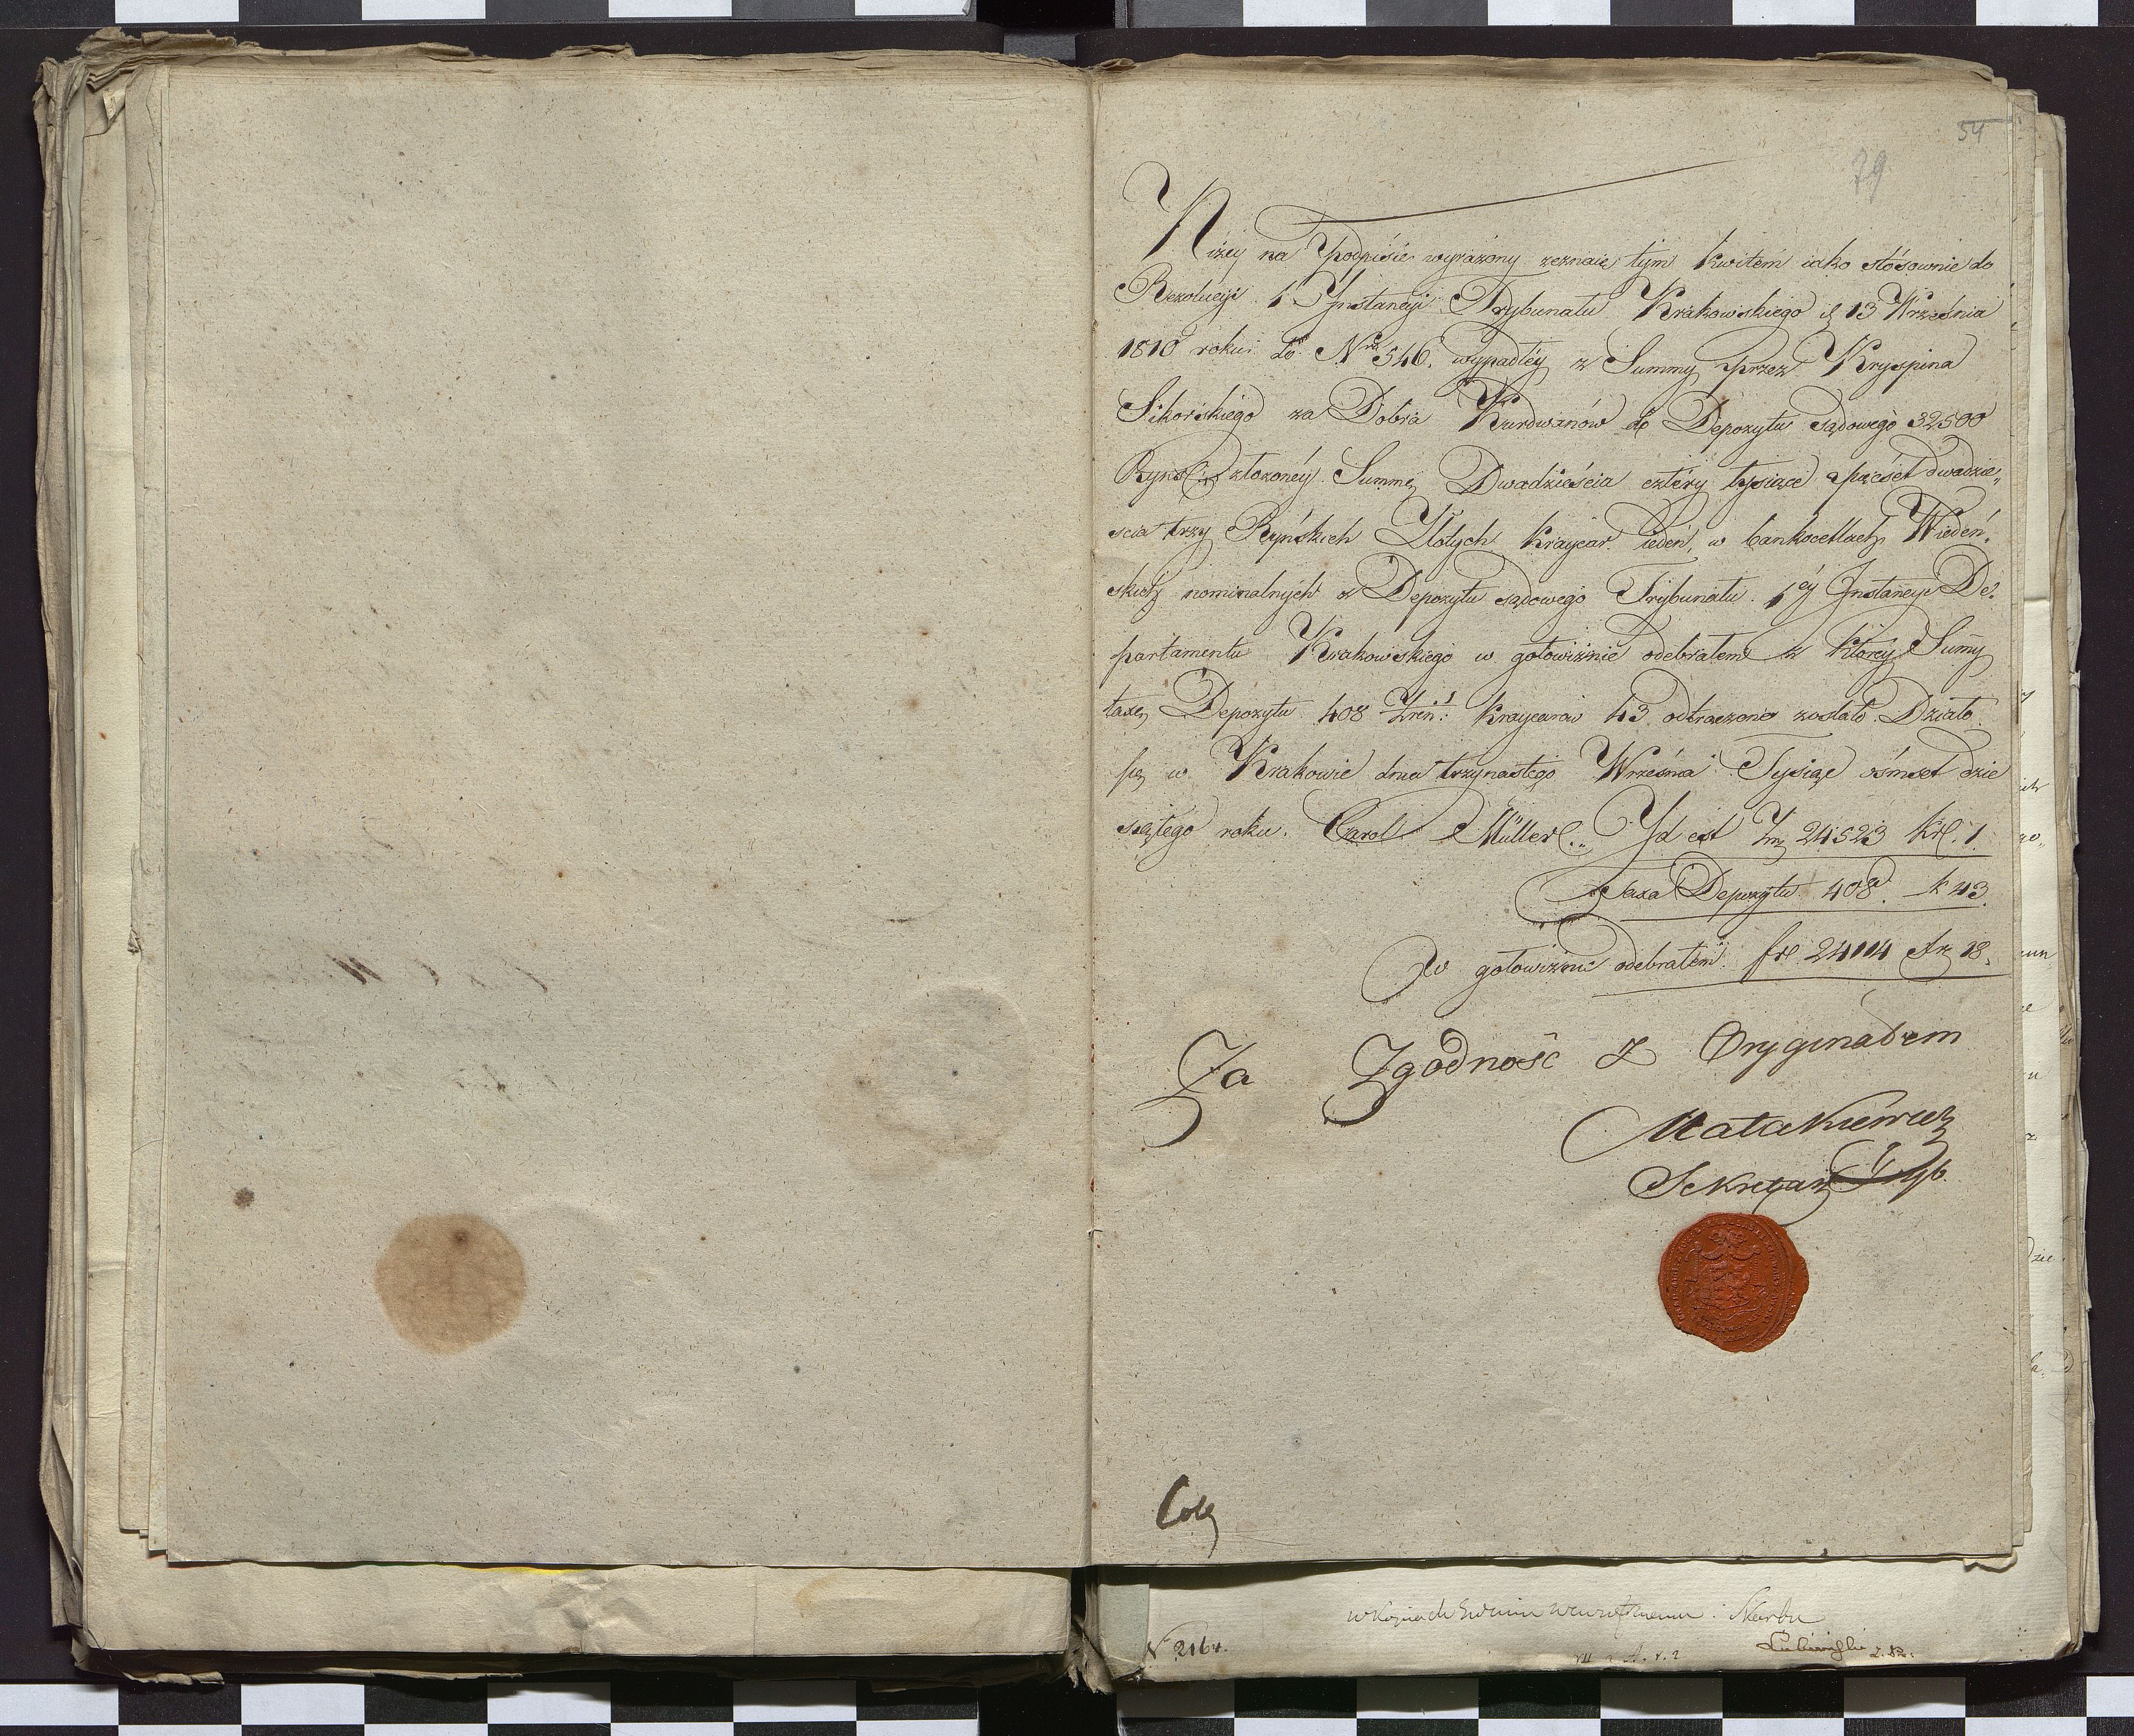 54
79
Niżey na Podpisie wyrażony zeznaię tym kwitem iako stósownie do
Rezolucyi 1 Instancyi Trybunału Krakowskiego 13 Września
1810 roku do Nru 546. wypadłéy z Summy przez Kryspina
Sikorskiego za Dobra Kurdwanów do Depozytu sądowego 32500
złożonéy Summę Dwadzieścia cztéry tysiące pięćset dwadzie„
scia trzy Ryńskich Złotych krayćar ieden, w bankocetlach Wiedeń„
skich nominalnych z Depozytu sądowego Trybunału 1éy Instancyi De„
partamentu Krakowskiego w gotowiznie odebrałem z któréy Summy
taxę Depozytu 408 kraycarów 43 odtrącono zostało. Działo
się w Krakowie dnia trzynastego Września Tysiąc ośmset dzie
siątego roku. Carol Müller Id est 24523 1.
Taxa Depozytu 408. k 43.
W gotowiznie odebrałem 24114 18.
Za Zgodność z Oryginałem
Matakiewicz
Sekretarz Tryb.
Coll
Skarbu
N 2164.